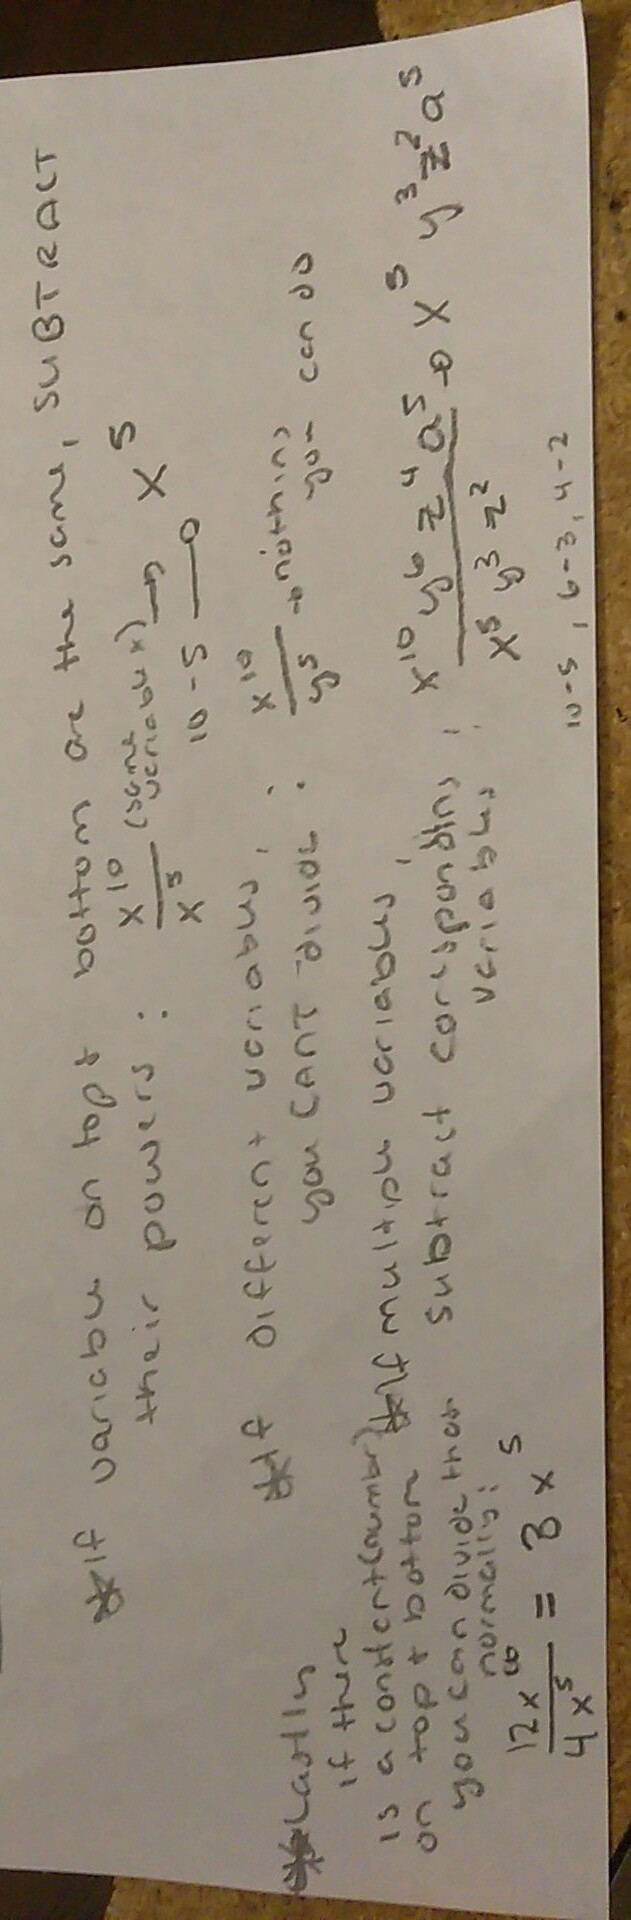 * If variable on top & bottom are the same, SUBTRACT
their powers : x^10/x^5 (same variable x) → x^5
10 - 5
* If different variables,
you CANT divide : x^10/y^5 → nothing you can do
* If multiple variables,
subtract corresponding variables : x^10 y^6 z^4 a^5 / x^5 y^3 z^2 → x^5 y^3 z^2 a^5
10-5, 6-3, 4-2
* Lastly
if there
is a constent (number)
on top & bottom
you can divide them
normally:
12x^10/4x^5 = 3x^5